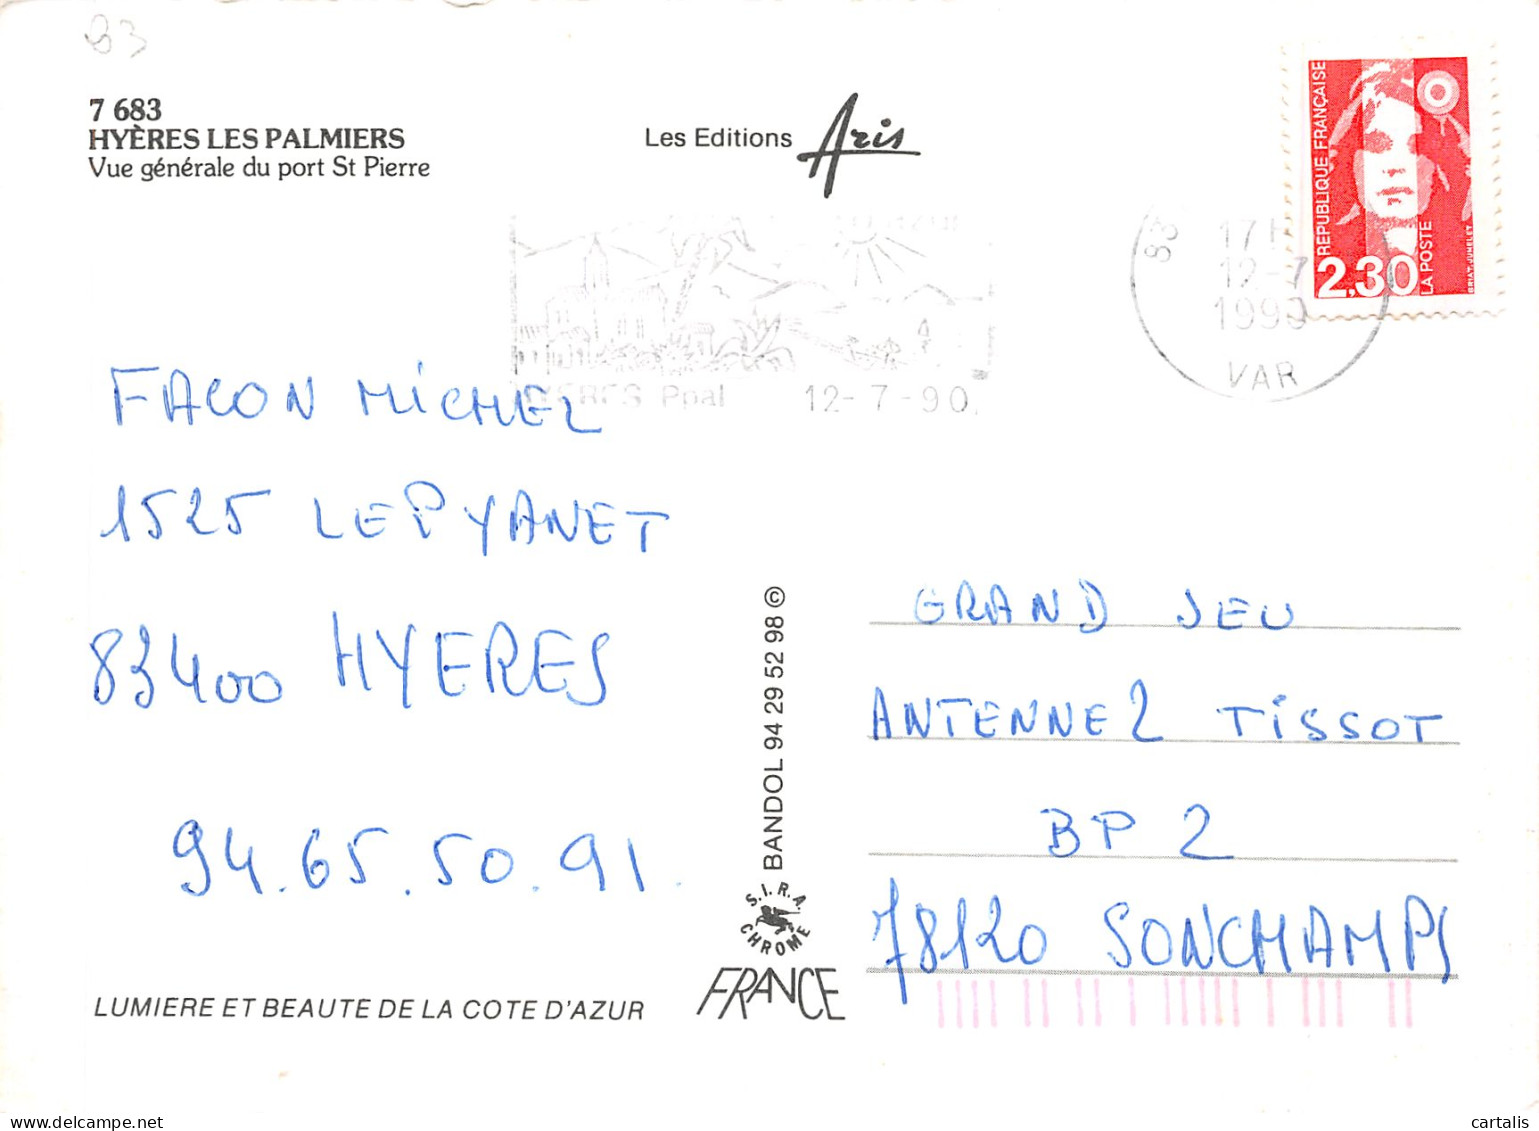 83
7 683
HYÈRES LES PALMIERS
Vue générale du port St Pierre
Les Editions Aris
REPUBLIQUE FRANÇAISE
2,30
LA POSTE
BRIAT-JUMELET
83
17H
12-7
1990
VAR
HYERES Ppal 12-7-90
FACON MICHEL
1525 LE PYANET
83400 HYERES
94.65.50.91.
GRAND JEU
ANTENNE 2 TISSOT
BP 2
78120 SONCHAMPS
BANDOL 94 29 52 98 ©
S.I.R.A.
CHROME
FRANCE
LUMIERE ET BEAUTE DE LA COTE D'AZUR
www.delcampe.net
cartalis